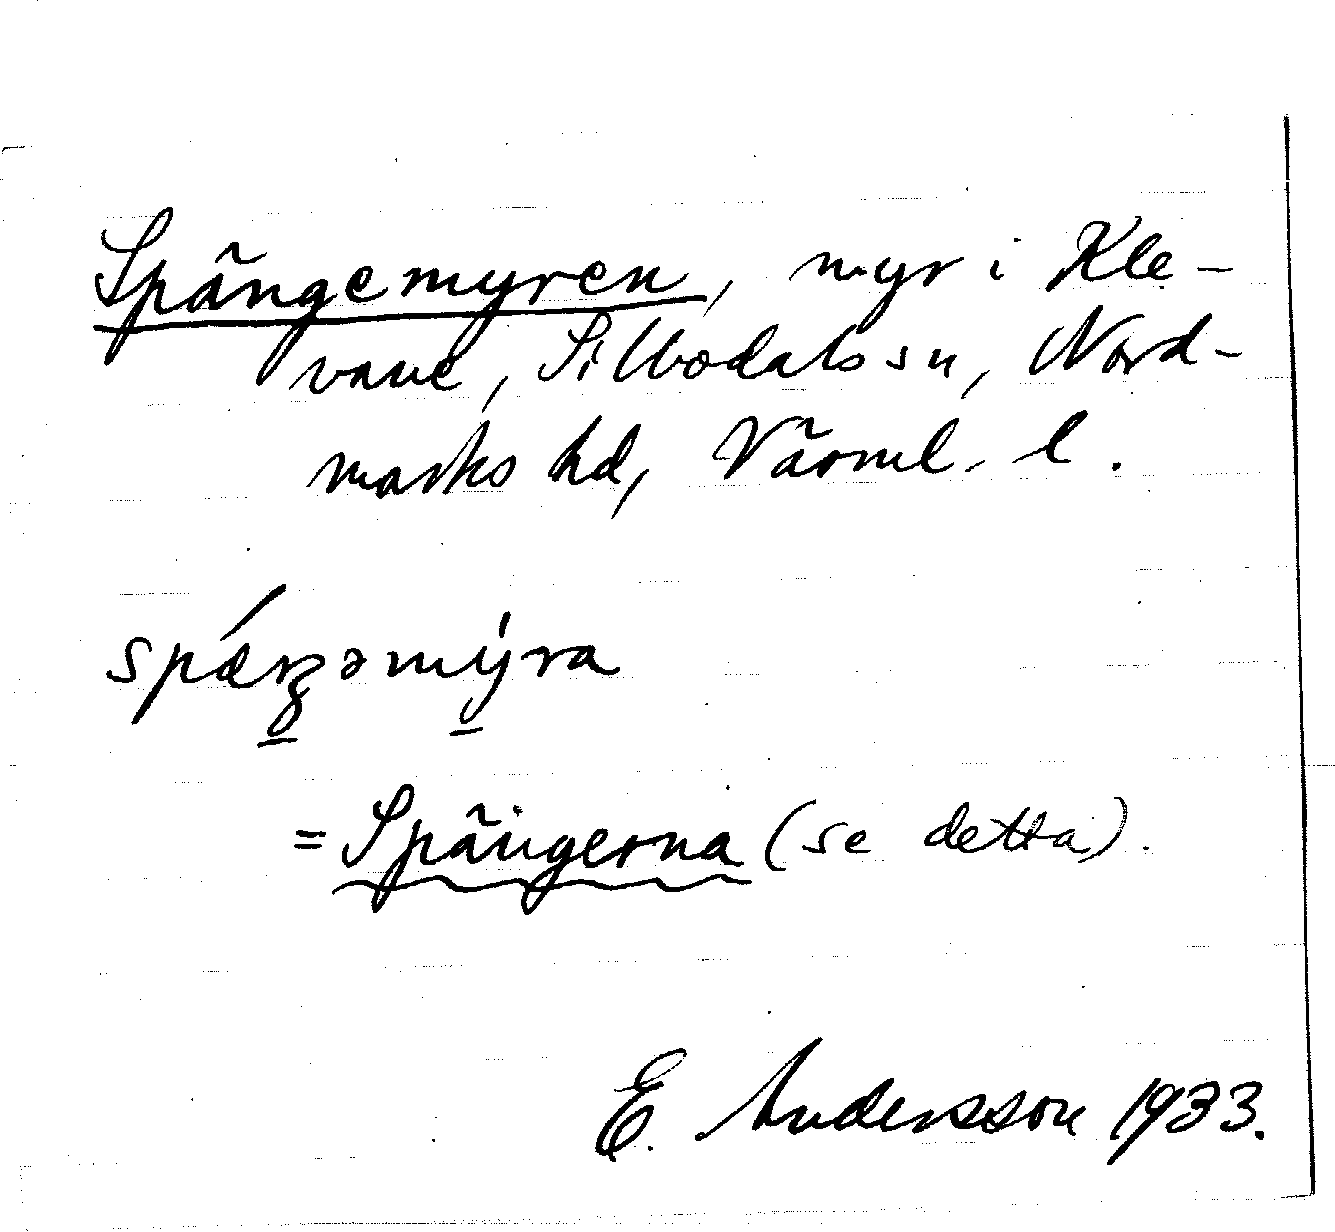 Spängemyren, myr i Kle-
vane, Silbodals sn, Nord-
marks hd, Värml. l.
spǽŋʒəmýra
= Spängerna (se detta).
E. Andersson 1933.